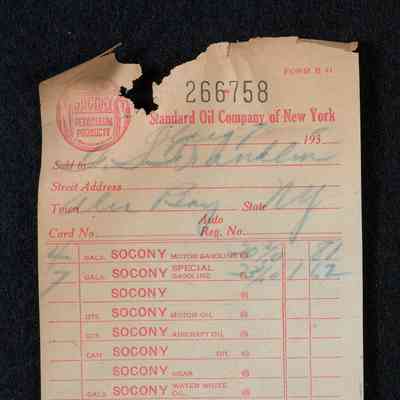 FORM B 41
266758
SOCONY
PETROLEUM
PRODUCTS
Standard Oil Company of New York
193
Sold to
Street Address
Town Alex Bay State NY
Card No. Auto Reg. No.
4 GALS. SOCONY MOTOR GASOLINE @ 81
7 GALS. SOCONY SPECIAL GASOLINE @ 1 62
SOCONY @
QTS. SOCONY MOTOR OIL @
GLS. SOCONY AIRCRAFT OIL @
CAN SOCONY OIL @
SOCONY GEAR @
GALS. SOCONY WATER WHITE OIL @